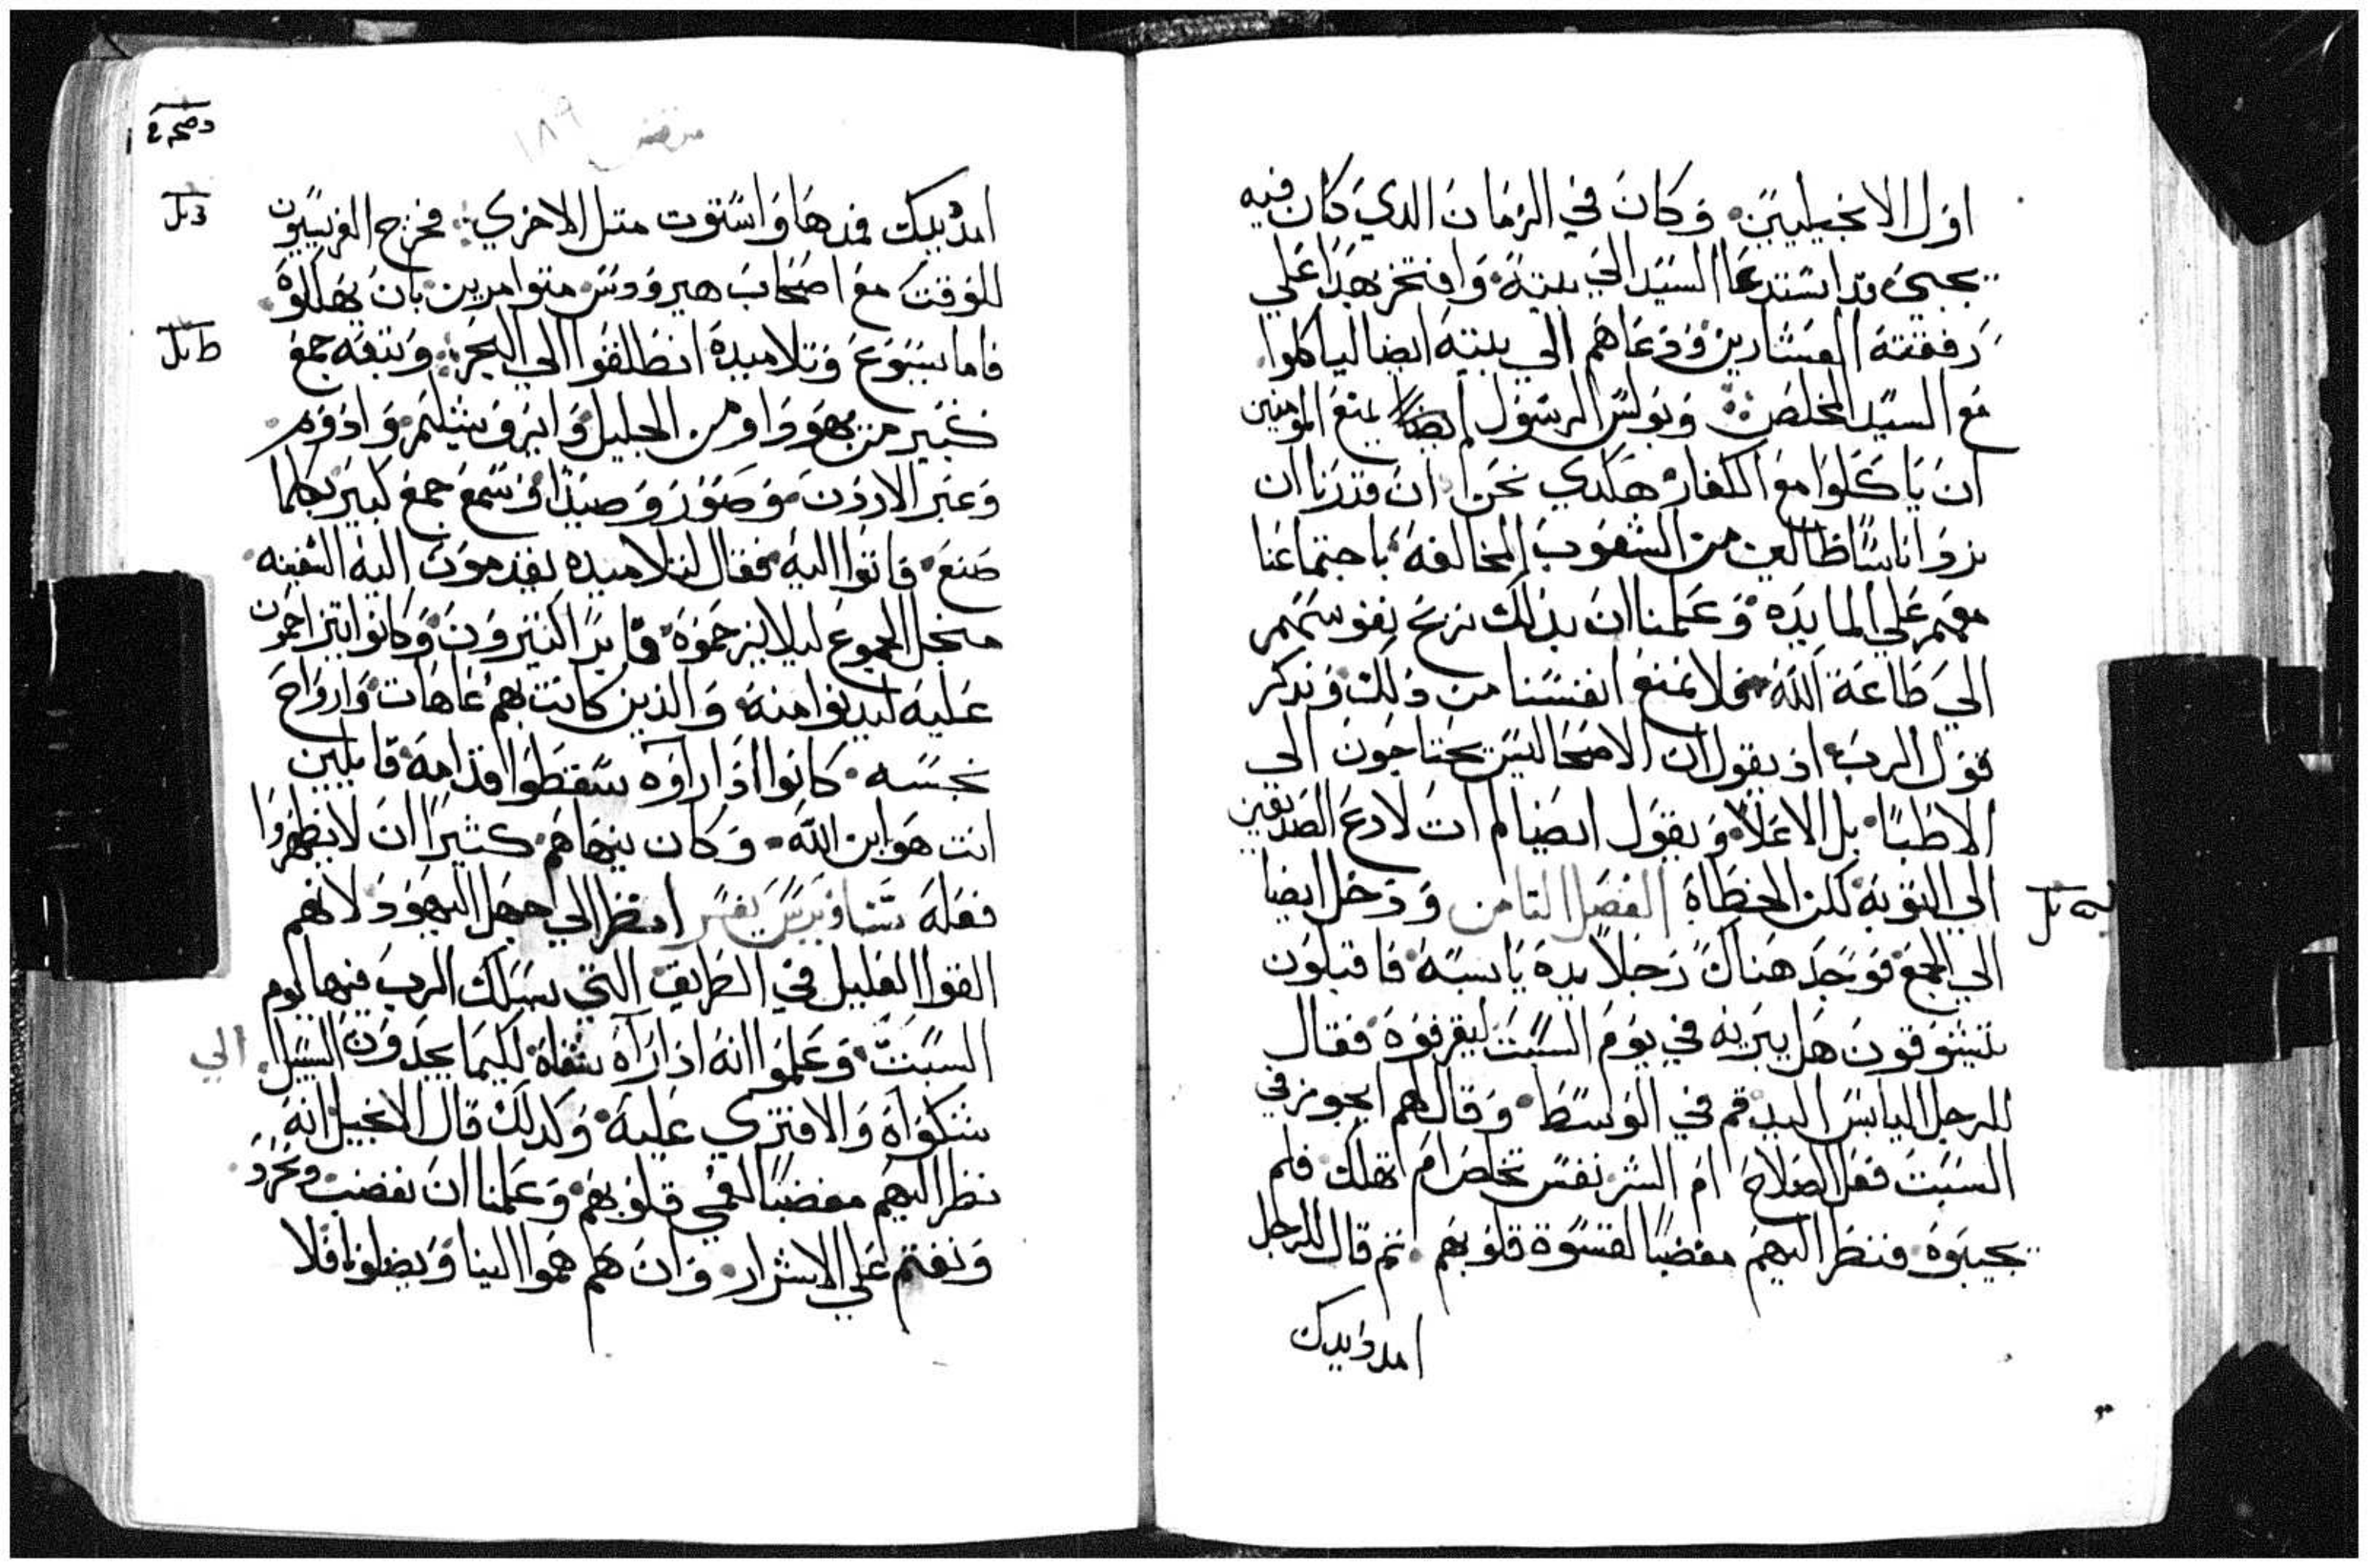 اول الانجيليين. وكان في الزمان الدي كان فيه
يجيء قد استدعا السيد الي بيته. وافتخر بهدا علي
رفقته العشارين. ودعاهم الي بيته ايضا لياكلوا
مع السيد المخلص. وبولس الرسول ايضا يمنع المومنين
ان ياكلوا مع الكفار. هكدي نحن ان قدرنا ان
نردوا ناسا ضالين من الشعوب المخالفه. باجتماعنا
معهم علي المايده. وعلمنا ان بدلك نربح نفوسهم
الي طاعة الله. فلا نمنع انفسنا من دلك. وندكر
قول الرب. اد يقول ان الاصحا ليس يحتاجون الي
الاطبا. بل الاعلا. ويقول ايضا لم ات لادع الصديقين
الي التوبه لكن الخطاة. الفصل التامن ودخل ايضا
الي المجمع فوجد هناك رجلا يده يابسة. فاقبلون
يتشوقون هل يبريه في يوم السبت ليقرفوه. فقال
للرجل اليابس اليد. قم في الوسط. وقال لهم ايجوز في
السبت فعل الصلاح ام الشر نفس تخلص ام تهلك. فلم
يجيبوه. فنظر اليهم مغضبا لقسوة قلوبهم. تم قال للرجل
امدد يدك
امدد يدك فمدها واستوت متل الاخري. فخرج الفريسيون
للوقت مع اصحاب هيرودس متوامرين بان يهلكوه.
فاما يسوع وتلاميده انطلقوا الي البحر. وتبعه جمع
كبير من يهودا ومن الجليل وايروشليم. وادوم
وعبر الاردن. وصور وصيدا. وسمع جمع كبير بكلما
صنع. فاتوا اليه. فقال لتلاميده يقدمون اليه السفينه.
منجل الجموع ليلا يزحموه. فابرا كتيرون. وكانوا يتزاحمون
عليه ليدنوا منه. والذين كانت بهم عاهات. وارواح
نجسه. كانوا اذا راوه سقطوا قدامه. قايلين
انت هو ابن الله. وكان ينهاهم. كثيرا ان لا يظهروا
فعله يفسر انظر الي جهل اليهود لانهم
القوا العليل في الطريق التي يسلك الرب فيها يوم
السبت. وعلموا انه اذا راه شفاه. لكيما يجدون السبيل الي
شكواه والافتري عليه. وكدلك قال الانجيل انه
نظر اليهم مغضبا لعمي قلوبهم. وعلمنا ان نغضب ونحرد
ونغتم علي الاشرار. وان هم هموا الينا ويضلونا فلا